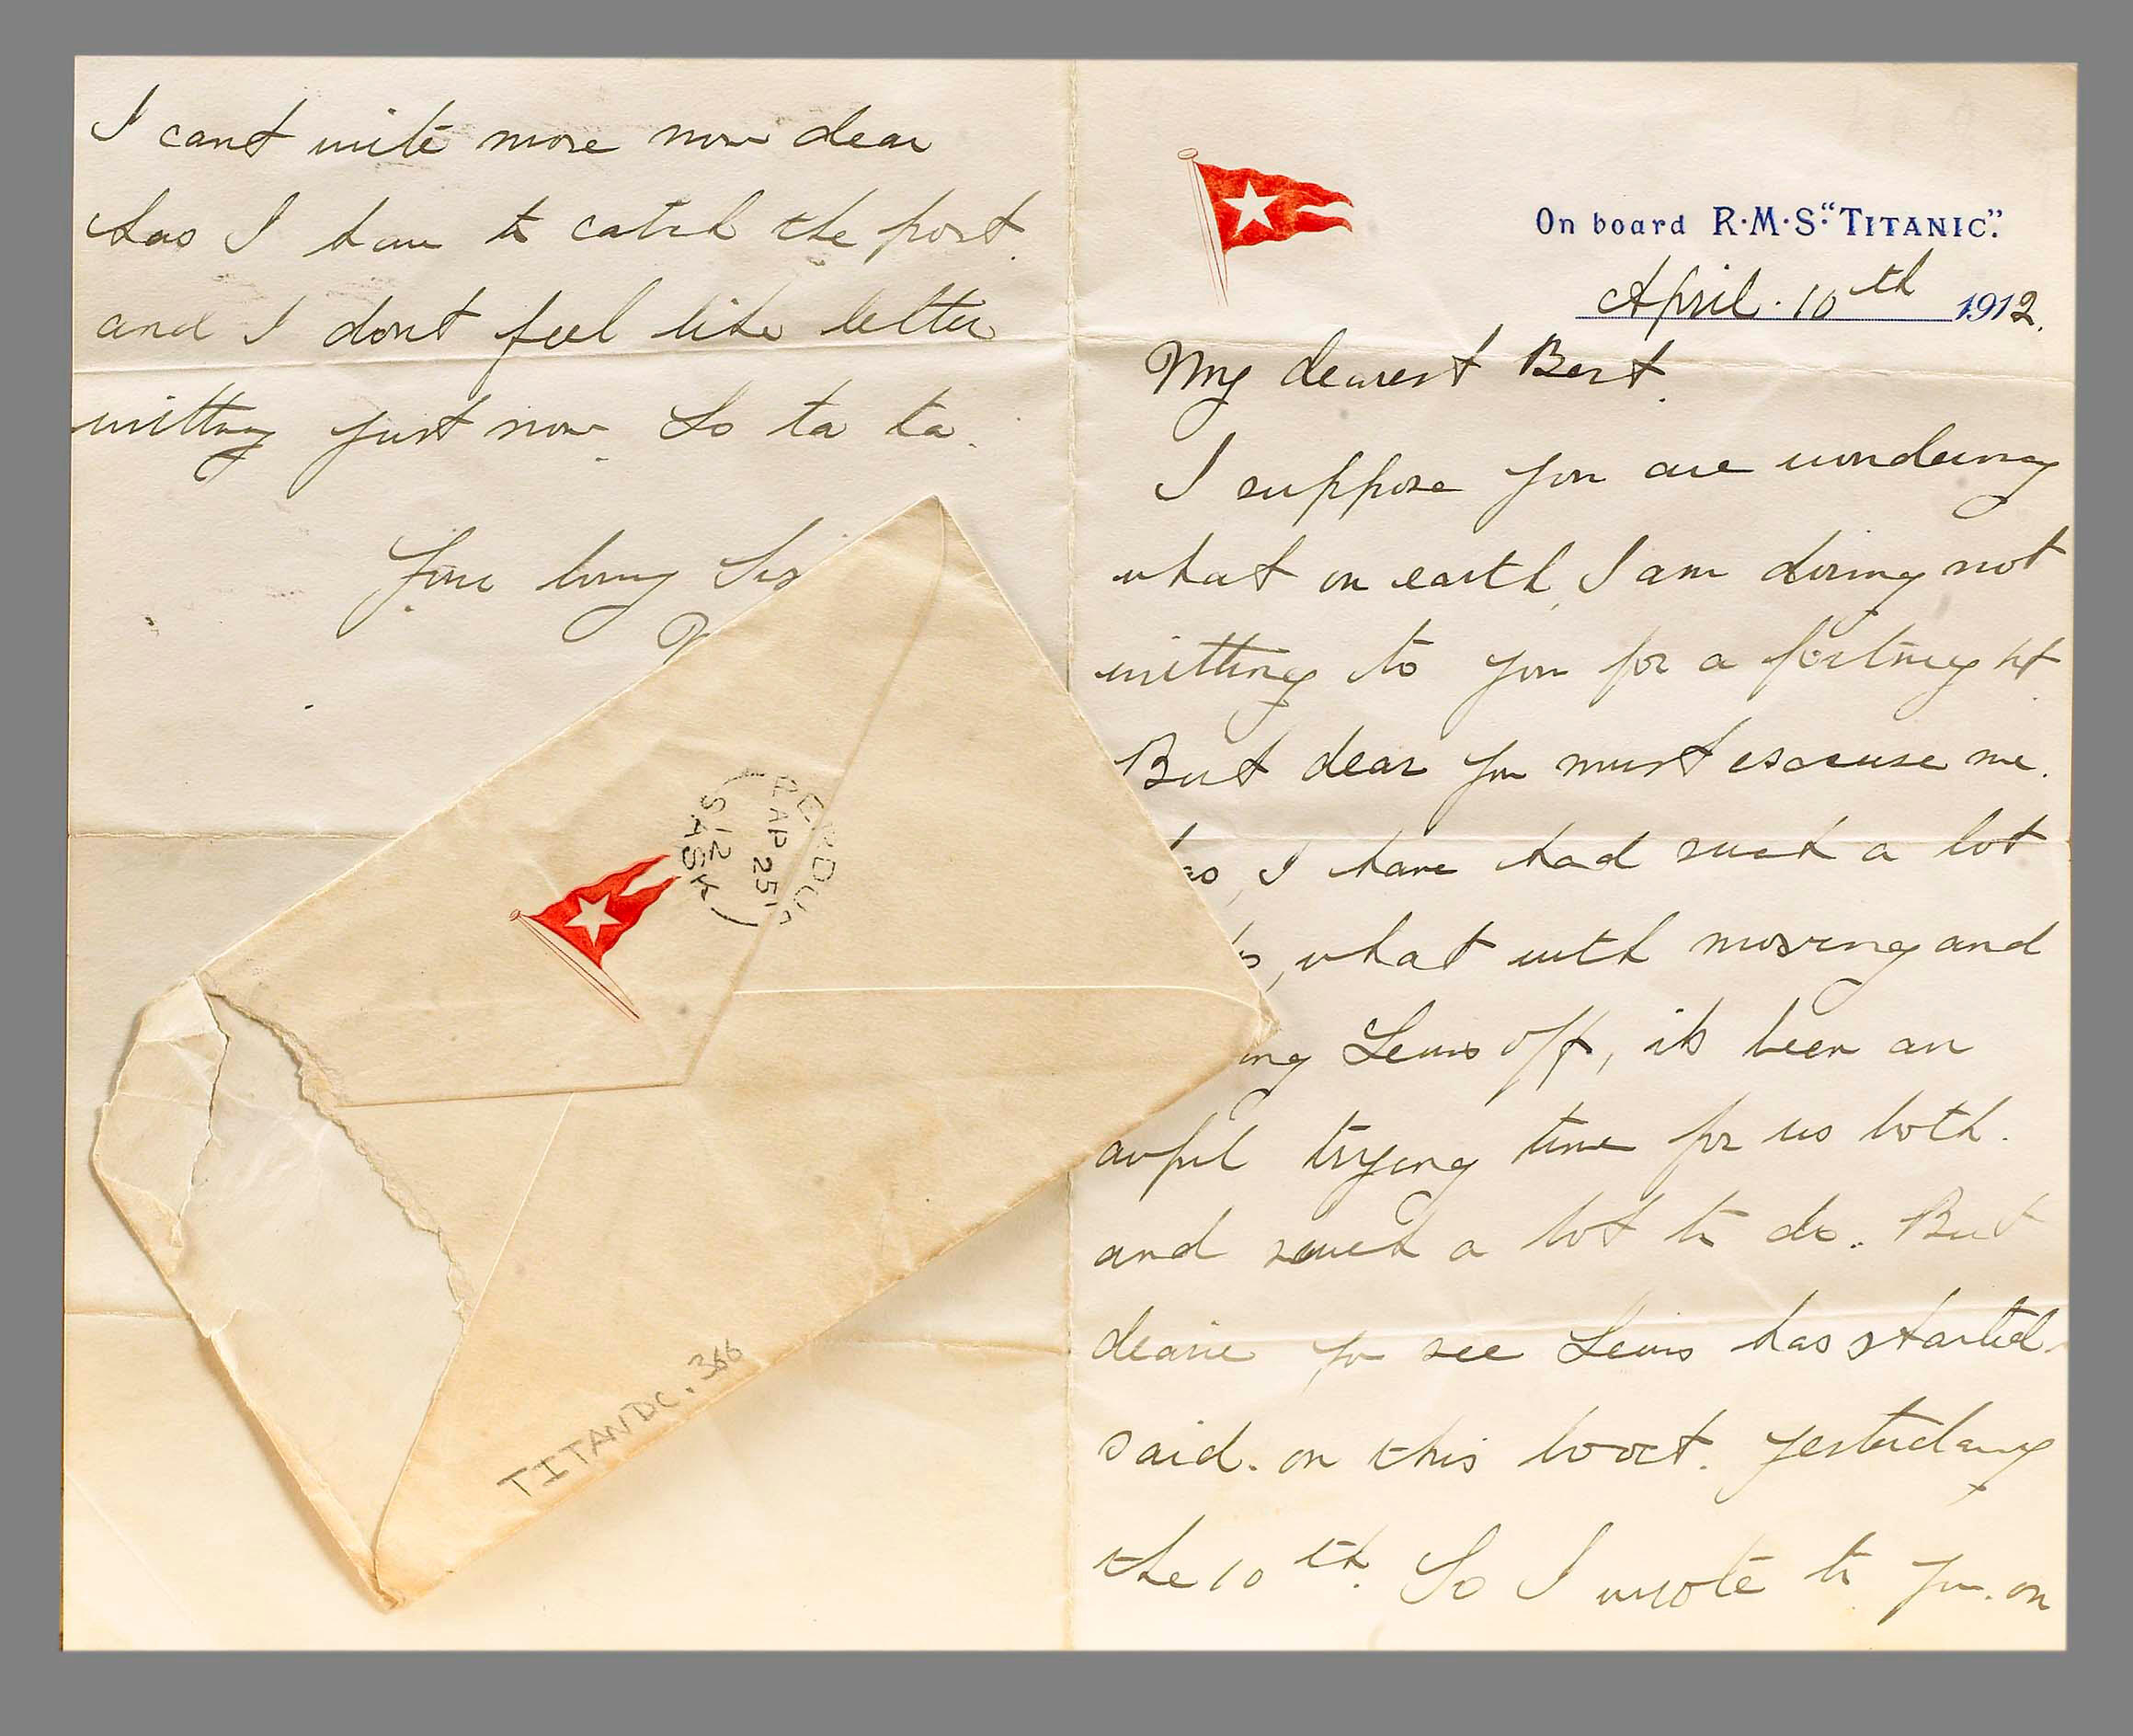 On board R·M·S·"TITANIC".
April. 10th 1912.
My dearest Bert.
I suppose you are wondering
what on earth, I am doing not
writting to you for a fortnight
But dear you must escuse me.
I have had such a lot
, what with moving and
Lewis off, its been an
awful trying time for us both.
and such a lot to do. But
dearie you see Lewis has started.
said. on this boat. yesterday
the 10th. So I wrote to you. on
I cant write more now dear
has I have to catch the post.
and I dont feel like letter
writting just now. So ta ta.
Your loving Sis
PERDUE
AP 25
12
SASK
TITANDC.366